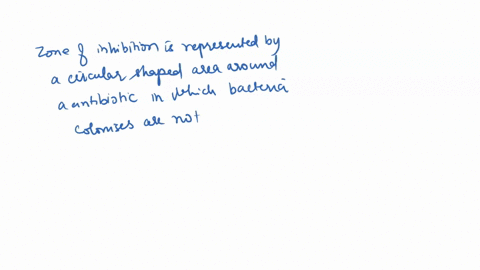 Zone of inhibition is represented by
a circular shaped area around
a antibiotic in which bacteria
colonises are not